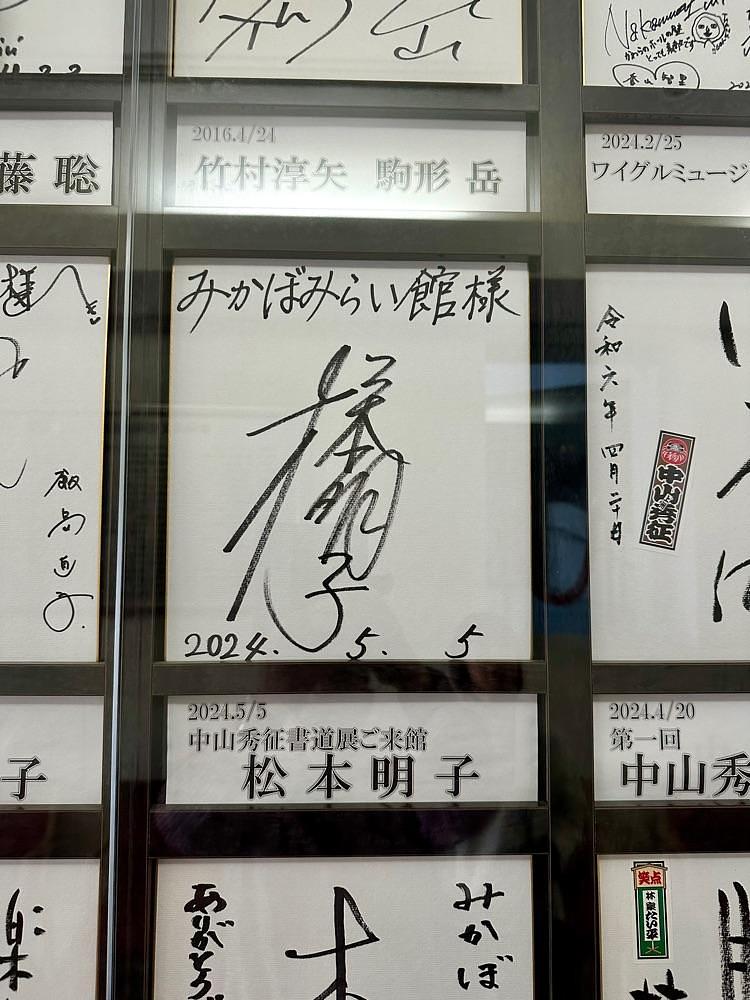 2016.4/24
竹村淳矢 駒形 岳
2024.2/25
ワイグルミュージ
藤 聡
みかぼみらい館様
松本明子
2024. 5. 5
令和六年 四月二十日
中山秀征
飯島直子
2024.5/5
中山秀征書道展ご来館
松本明子
2024.4/20
第一回
中山秀
子
ありがとうご
みかぼ
笑点
林家たい平